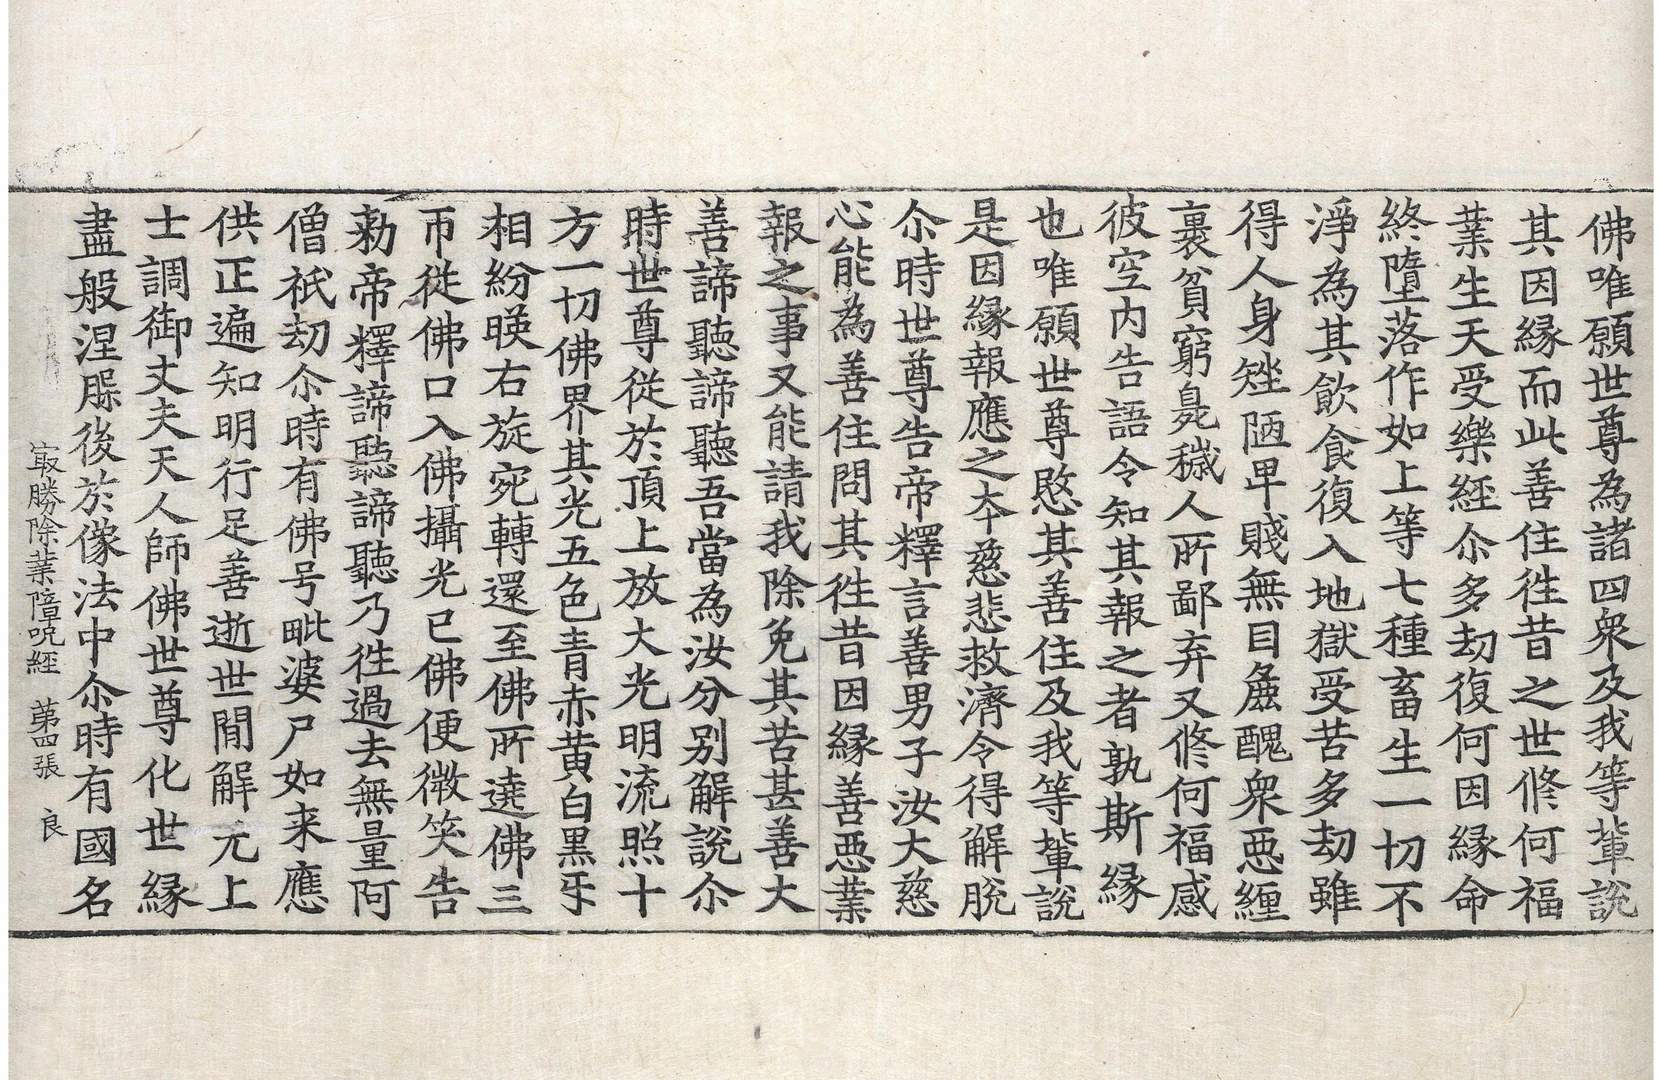 佛唯願世尊為諸四衆及我等輩說
其因緣而此善住徃昔之世修何福
業生天受樂經尒多劫復何因緣命
終墮落作如上等七種畜生一切不
淨為其飲食復入地獄受苦多劫雖
得人身矬陋卑賤無目麁醜衆惡纏
裹貧窮臭穢人所鄙弃又修何福感
彼空內告語令知其報之者孰斯緣
也唯願世尊愍其善住及我等輩說
是因緣報應之本慈悲救濟令得解脫
尒時世尊告帝釋言善男子汝大慈
心能為善住問其徃昔因緣善惡業
報之事又能請我除免其苦甚善大
善諦聽諦聽吾當為汝分別解說尒
時世尊從於頂上放大光明流照十
方一切佛界其光五色青赤黃白黑牙
相紛暎右旋宛轉還至佛所遶佛三
帀從佛口入佛攝光已佛便微笑告
勑帝釋諦聽諦聽乃徃過去無量阿
僧祇劫尒時有佛号毗婆尸如来應
供正遍知明行足善逝世閒解无上
士調御丈夫天人師佛世尊化世緣
盡般涅槃後於像法中尒時有國名
最勝除業障呪經　第四張　良